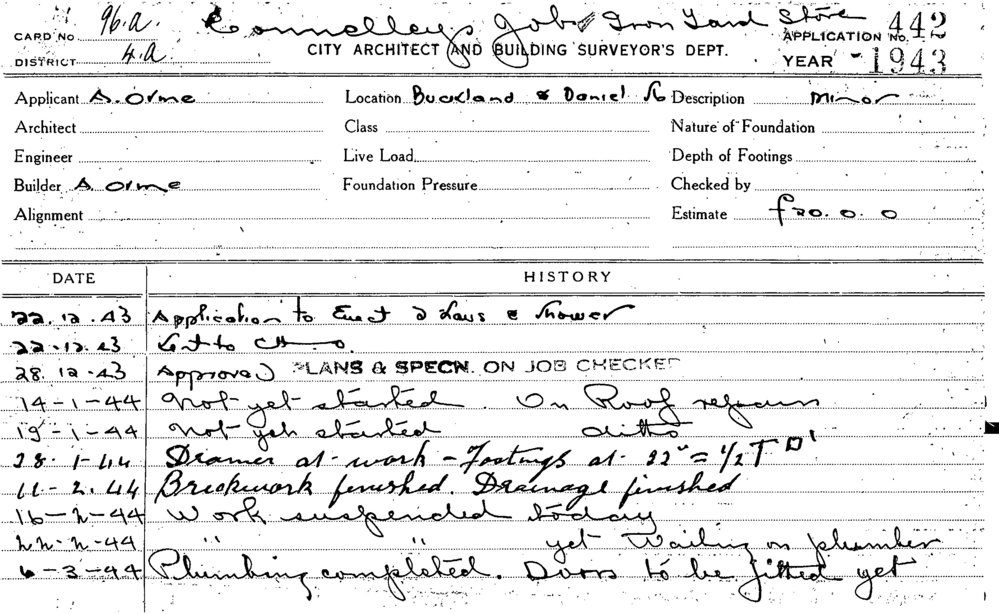 CARD No 96.a. Connolleys Job Iron Yard Store APPLICATION No. 442
DISTRICT 4.a. CITY ARCHITECT AND BUILDING SURVEYOR'S DEPT. YEAR -1943
Applicant A. Orme Location Buckland & Daniel Description Minor
Architect Class Nature of Foundation
Engineer Live Load Depth of Footings
Builder A Orme Foundation Pressure Checked by
Alignment Estimate £20. 0. 0
DATE HISTORY
22.12.43 Application to Erect 2 Lavs & Shower
22.12.43 Sent to
28.12.43 Approved PLANS & SPECN. ON JOB CHECKED
14-1-44 Not yet started. On Roof repairs
19-1-44 Not yet started ditto
28.1.44 Drainer at work - Footings at 22" = 1/2 T
11-2.44 Brickwork finished. Drainage finished
16-2-44 Work suspended today
22-2-44 " " yet Waiting on plumber
6-3-44 Plumbing completed. Doors to be fitted yet